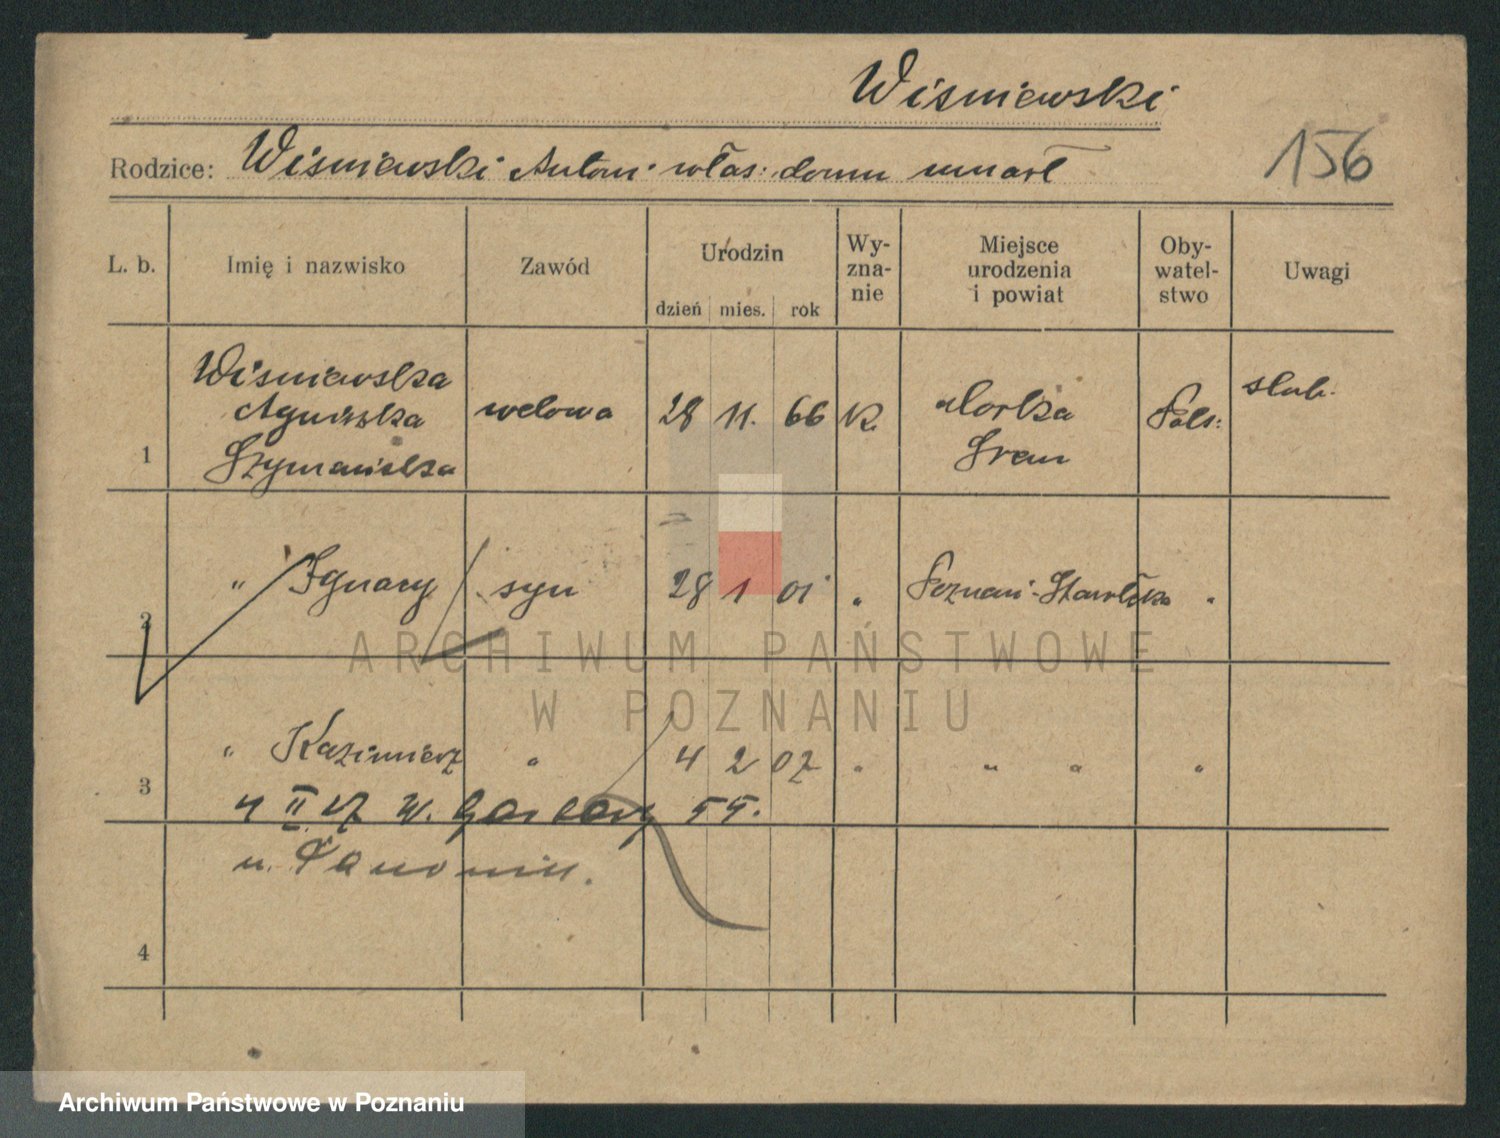 Wiśniewski
Rodzice: Wiśniewski Antoni właś. domu umarł
156
L. b. Imię i nazwisko Zawód Urodzin dzień mies. rok Wy-zna-nie Miejsce urodzenia i powiat Oby-watel-stwo Uwagi
1 Wiśniewska Agnieszka Szymańska wdowa 28 11. 66 K. Śrem Pols: ślub.
2 " Ignacy syn 28 1 01 " Poznań-Starołęka "
3 " Kazimierz " 4 2 07 " " " "
4 II 27 W. Garbary 55.
u.
4
ARCHIWUM PAŃSTWOWE
W POZNANIU
Archiwum Państwowe w Poznaniu